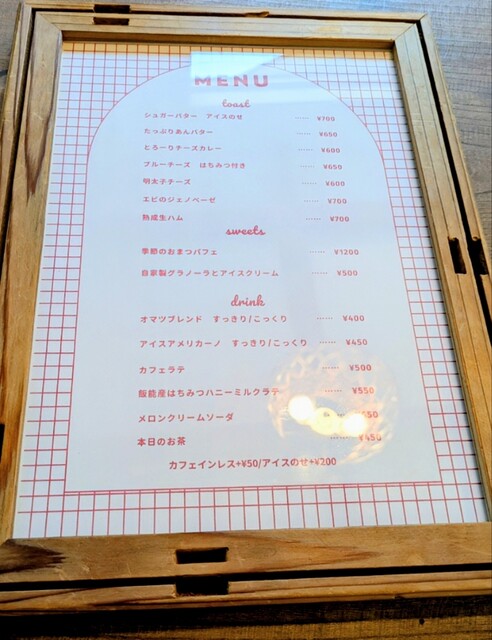 MENU
toast
シュガーバター アイスのせ ...... ¥700
たっぷりあんバター ...... ¥650
とろーりチーズカレー ...... ¥600
ブルーチーズ はちみつ付き ...... ¥650
明太子チーズ ...... ¥600
エビのジェノベーゼ ...... ¥700
熟成生ハム ...... ¥700
sweets
季節のおまつパフェ ...... ¥1200
自家製グラノーラとアイスクリーム ...... ¥500
drink
オマツブレンド すっきり/こっくり ...... ¥400
アイスアメリカーノ すっきり/こっくり ...... ¥450
カフェラテ ...... ¥500
飯能産はちみつハニーミルクラテ ...... ¥550
メロンクリームソーダ
本日のお茶 ...... ¥450
カフェインレス+¥50/アイスのせ+¥200